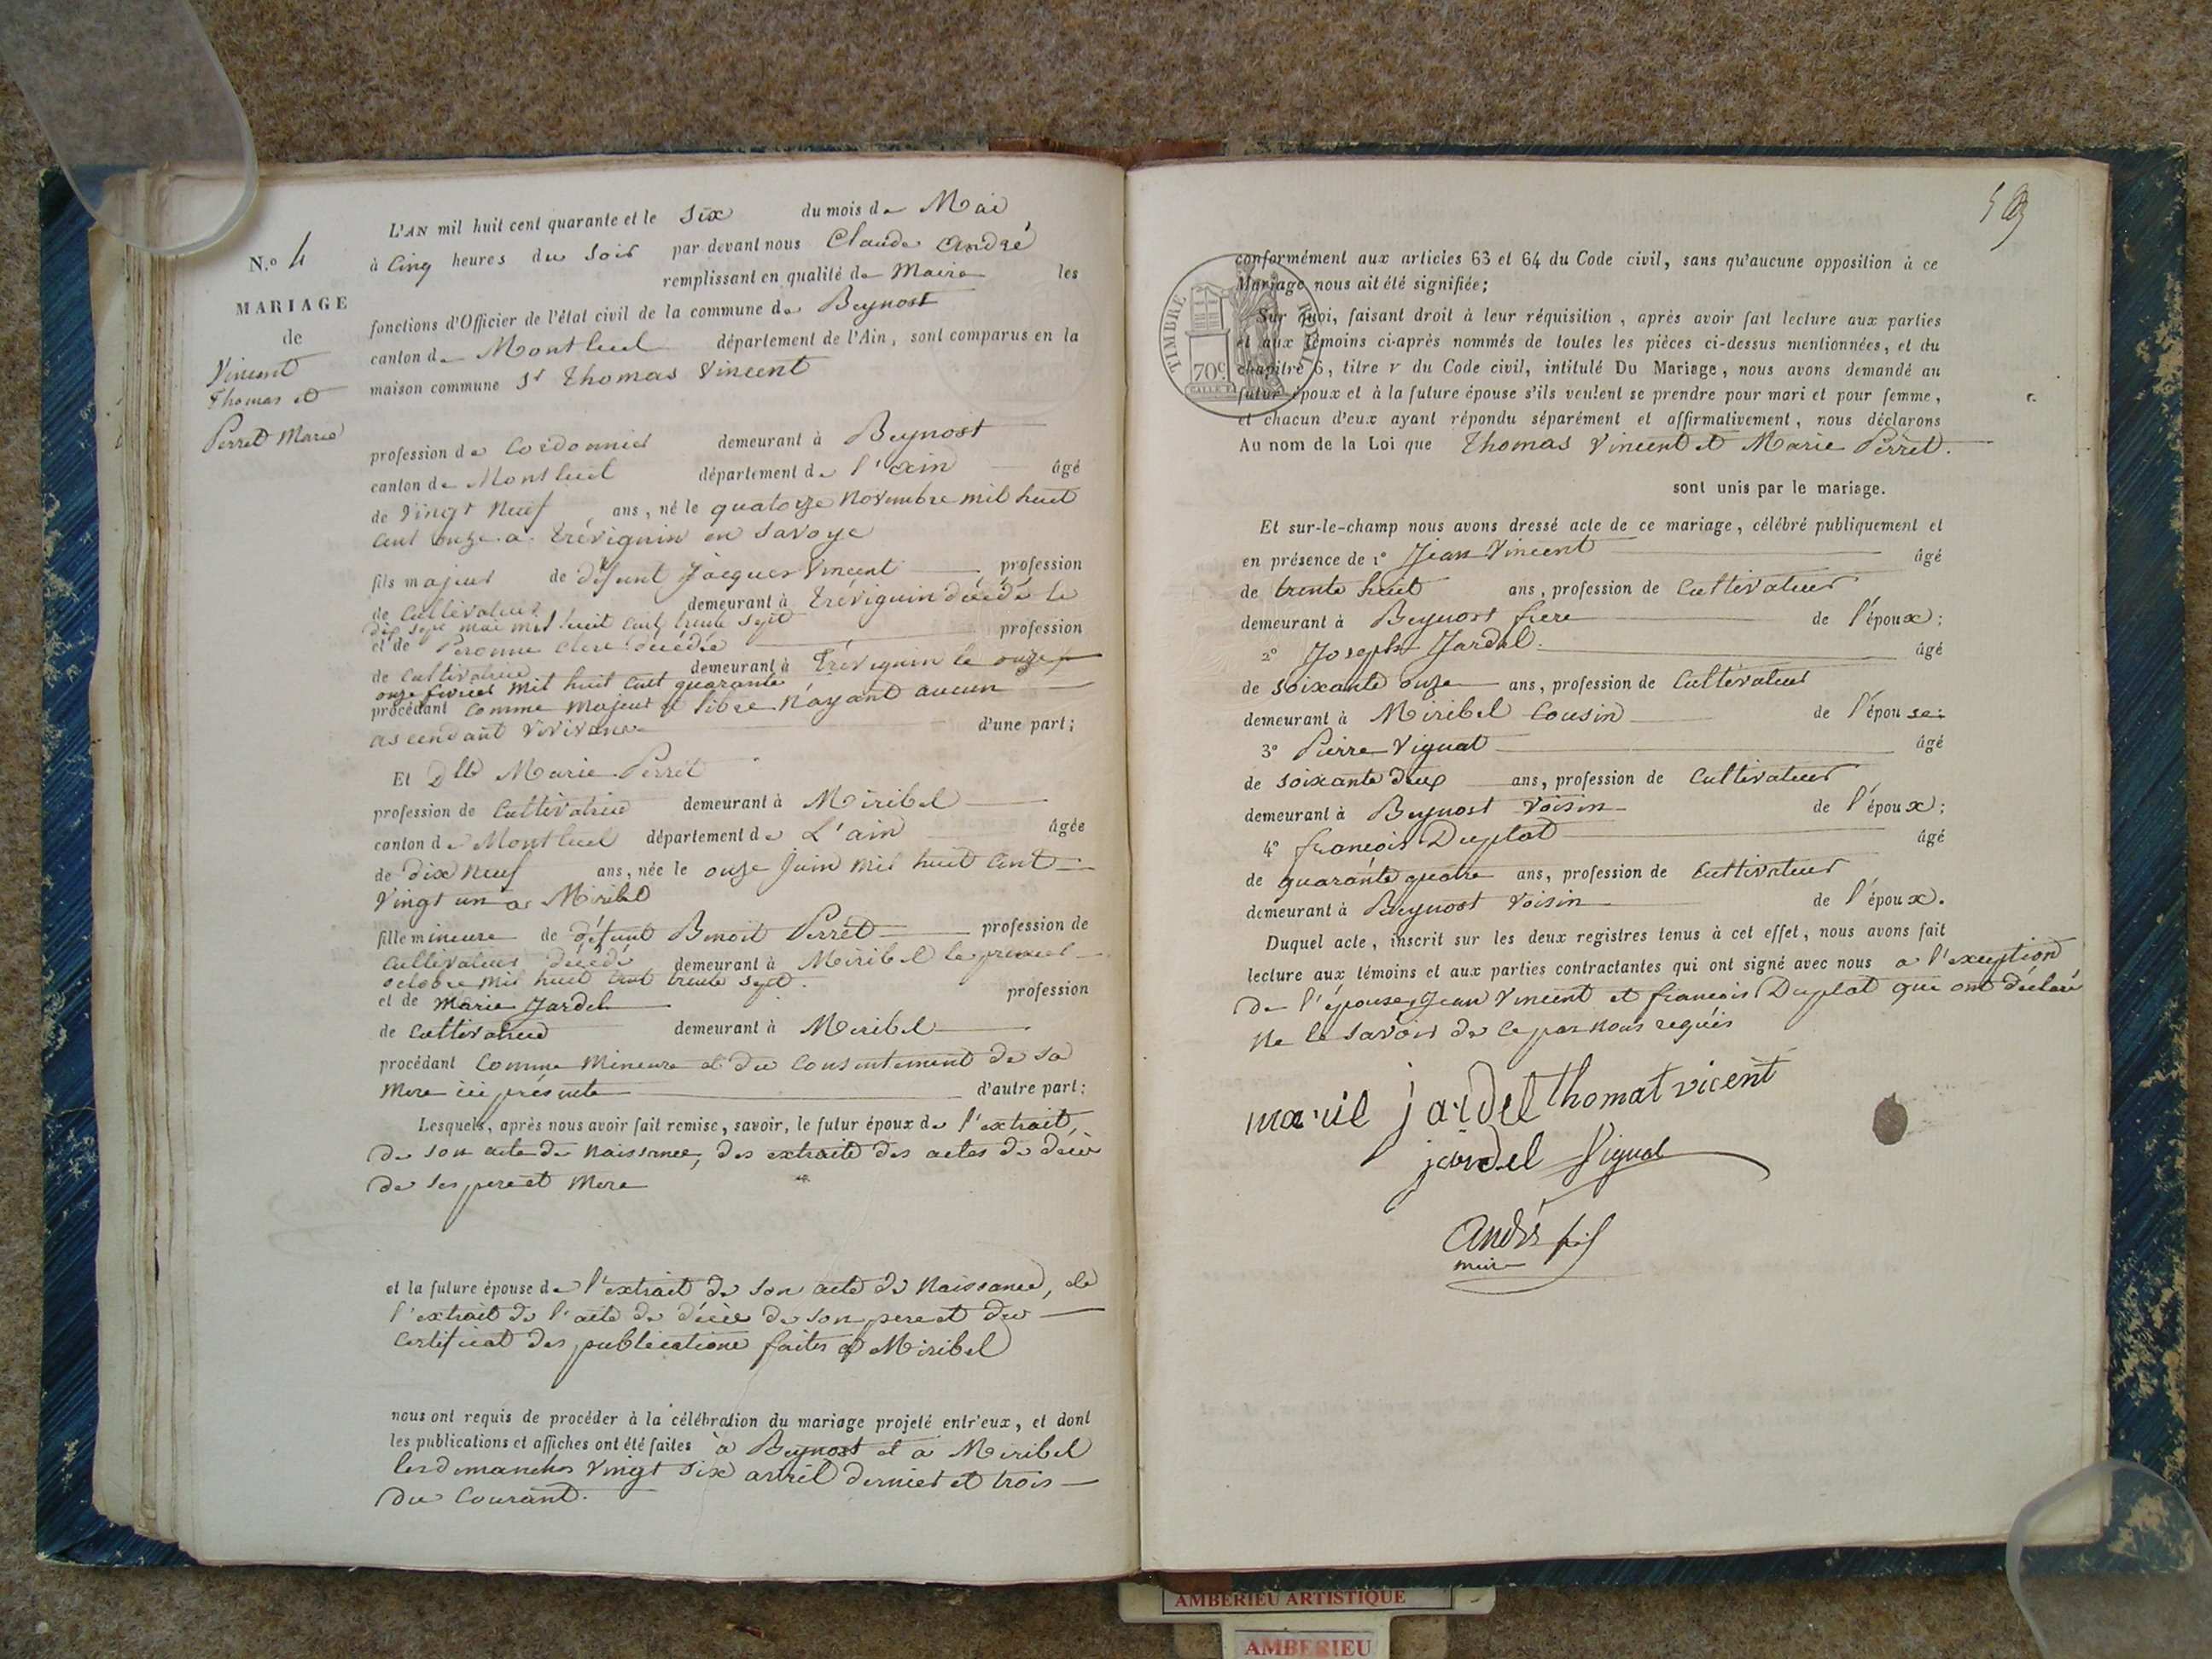 L'AN mil huit cent quarante et le Six du mois de Mai
N.o 4
à Cinq heures du Soir par devant nous Claude André
remplissant en qualité de Maire les
MARIAGE
fonctions d'Officier de l'état civil de la commune de Beynost
de
canton de Montluel département de l'Ain, sont comparus en la
Vincent
Thomas et
maison commune Sr Thomas Vincent
Perret Marie
profession de Cordonnier demeurant à Beynost
canton de Montluel département de l'ain âgé
de Vingt Neuf ans, né le quatorze Novembre mil huit
cent onze a Tréviguin en Savoye
fils majeur de défunt Jacques Vincent profession
de Cultivateur demeurant à Tréviguin décédé le
dix sept mai mil huit cent trente sept
et de Peronne Clerc décédée profession
de Cultivatrice demeurant à Tréviguin le onze
onze fevrier mil huit cent quarante
procédant comme Majeur et libre n'ayant aucun
ascendant vivivans d'une part;
Et Dlle Marie Perret
profession de Cultivatrice demeurant à Miribel
canton de Montluel département de L'ain âgée
de dix neuf ans, née le onze Juin mil huit cent
Vingt un a Miribel
fille mineure de défunt Benoit Perret profession de
Cultivateur décédé demeurant à Miribel le premier
octobre mil huit cent trente sept.
et de Marie Jardel profession
de Cultivatrice demeurant à Miribel
procédant Comme Mineure et du Consentement de sa
Mere ici présente d'autre part;
Lesquels, après nous avoir fait remise, savoir, le futur époux de l'extrait,
de son acte de Naissance, des extraits des actes de décès
de ses pere et Mere
et la future épouse de l'extrait de son acte de Naissance, de
l'extrait de l'acte de décès de son pere et du
Certificat des publications faites a Miribel
nous ont requis de procéder à la célébration du mariage projeté entr'eux, et dont
les publications et affiches ont été faites à Beynost et a Miribel
les dimanches Vingt Six avril dernier et trois
du Courant.
conformément aux articles 63 et 64 du Code civil, sans qu'aucune opposition à ce
Mariage nous ait été signifiée;
TIMBRE ROYAL
70c
Sur quoi, faisant droit à leur réquisition, après avoir fait lecture aux parties
et aux témoins ci-après nommés de toutes les pièces ci-dessus mentionnées, et du
chapitre 6, titre v du Code civil, intitulé Du Mariage, nous avons demandé au
futur époux et à la future épouse s'ils veulent se prendre pour mari et pour femme,
et chacun d'eux ayant répondu séparément et affirmativement, nous déclarons
Au nom de la Loi que Thomas Vincent et Marie Perret.
sont unis par le mariage.
Et sur-le-champ nous avons dressé acte de ce mariage, célébré publiquement et
en présence de 1° Jean Vincent âgé
de trente huit ans, profession de Cultivateur
demeurant à Beynost frere de l'époux;
2° Joseph Jardel. âgé
de soixante onze ans, profession de Cultivateur
demeurant à Miribel Cousin de l'épouse;
3° Pierre Vignat âgé
de soixante deux ans, profession de Cultivateur
demeurant à Beynost Voisin de l'époux;
4° francois Duplat âgé
de quarante quatre ans, profession de Cultivateur
demeurant à Beynost Voisin de l'époux.
Duquel acte, inscrit sur les deux registres tenus à cet effet, nous avons fait
lecture aux témoins et aux parties contractantes qui ont signé avec nous a l'exception
de l'épouse, Jean Vincent et francois Duplat qui ont déclaré
Ne le savoir de ce par nous requis
marie jardel thomat vicent
jardel Vignat
André fils
maire
AMBERIEU ARTISTIQUE
AMBERIEU